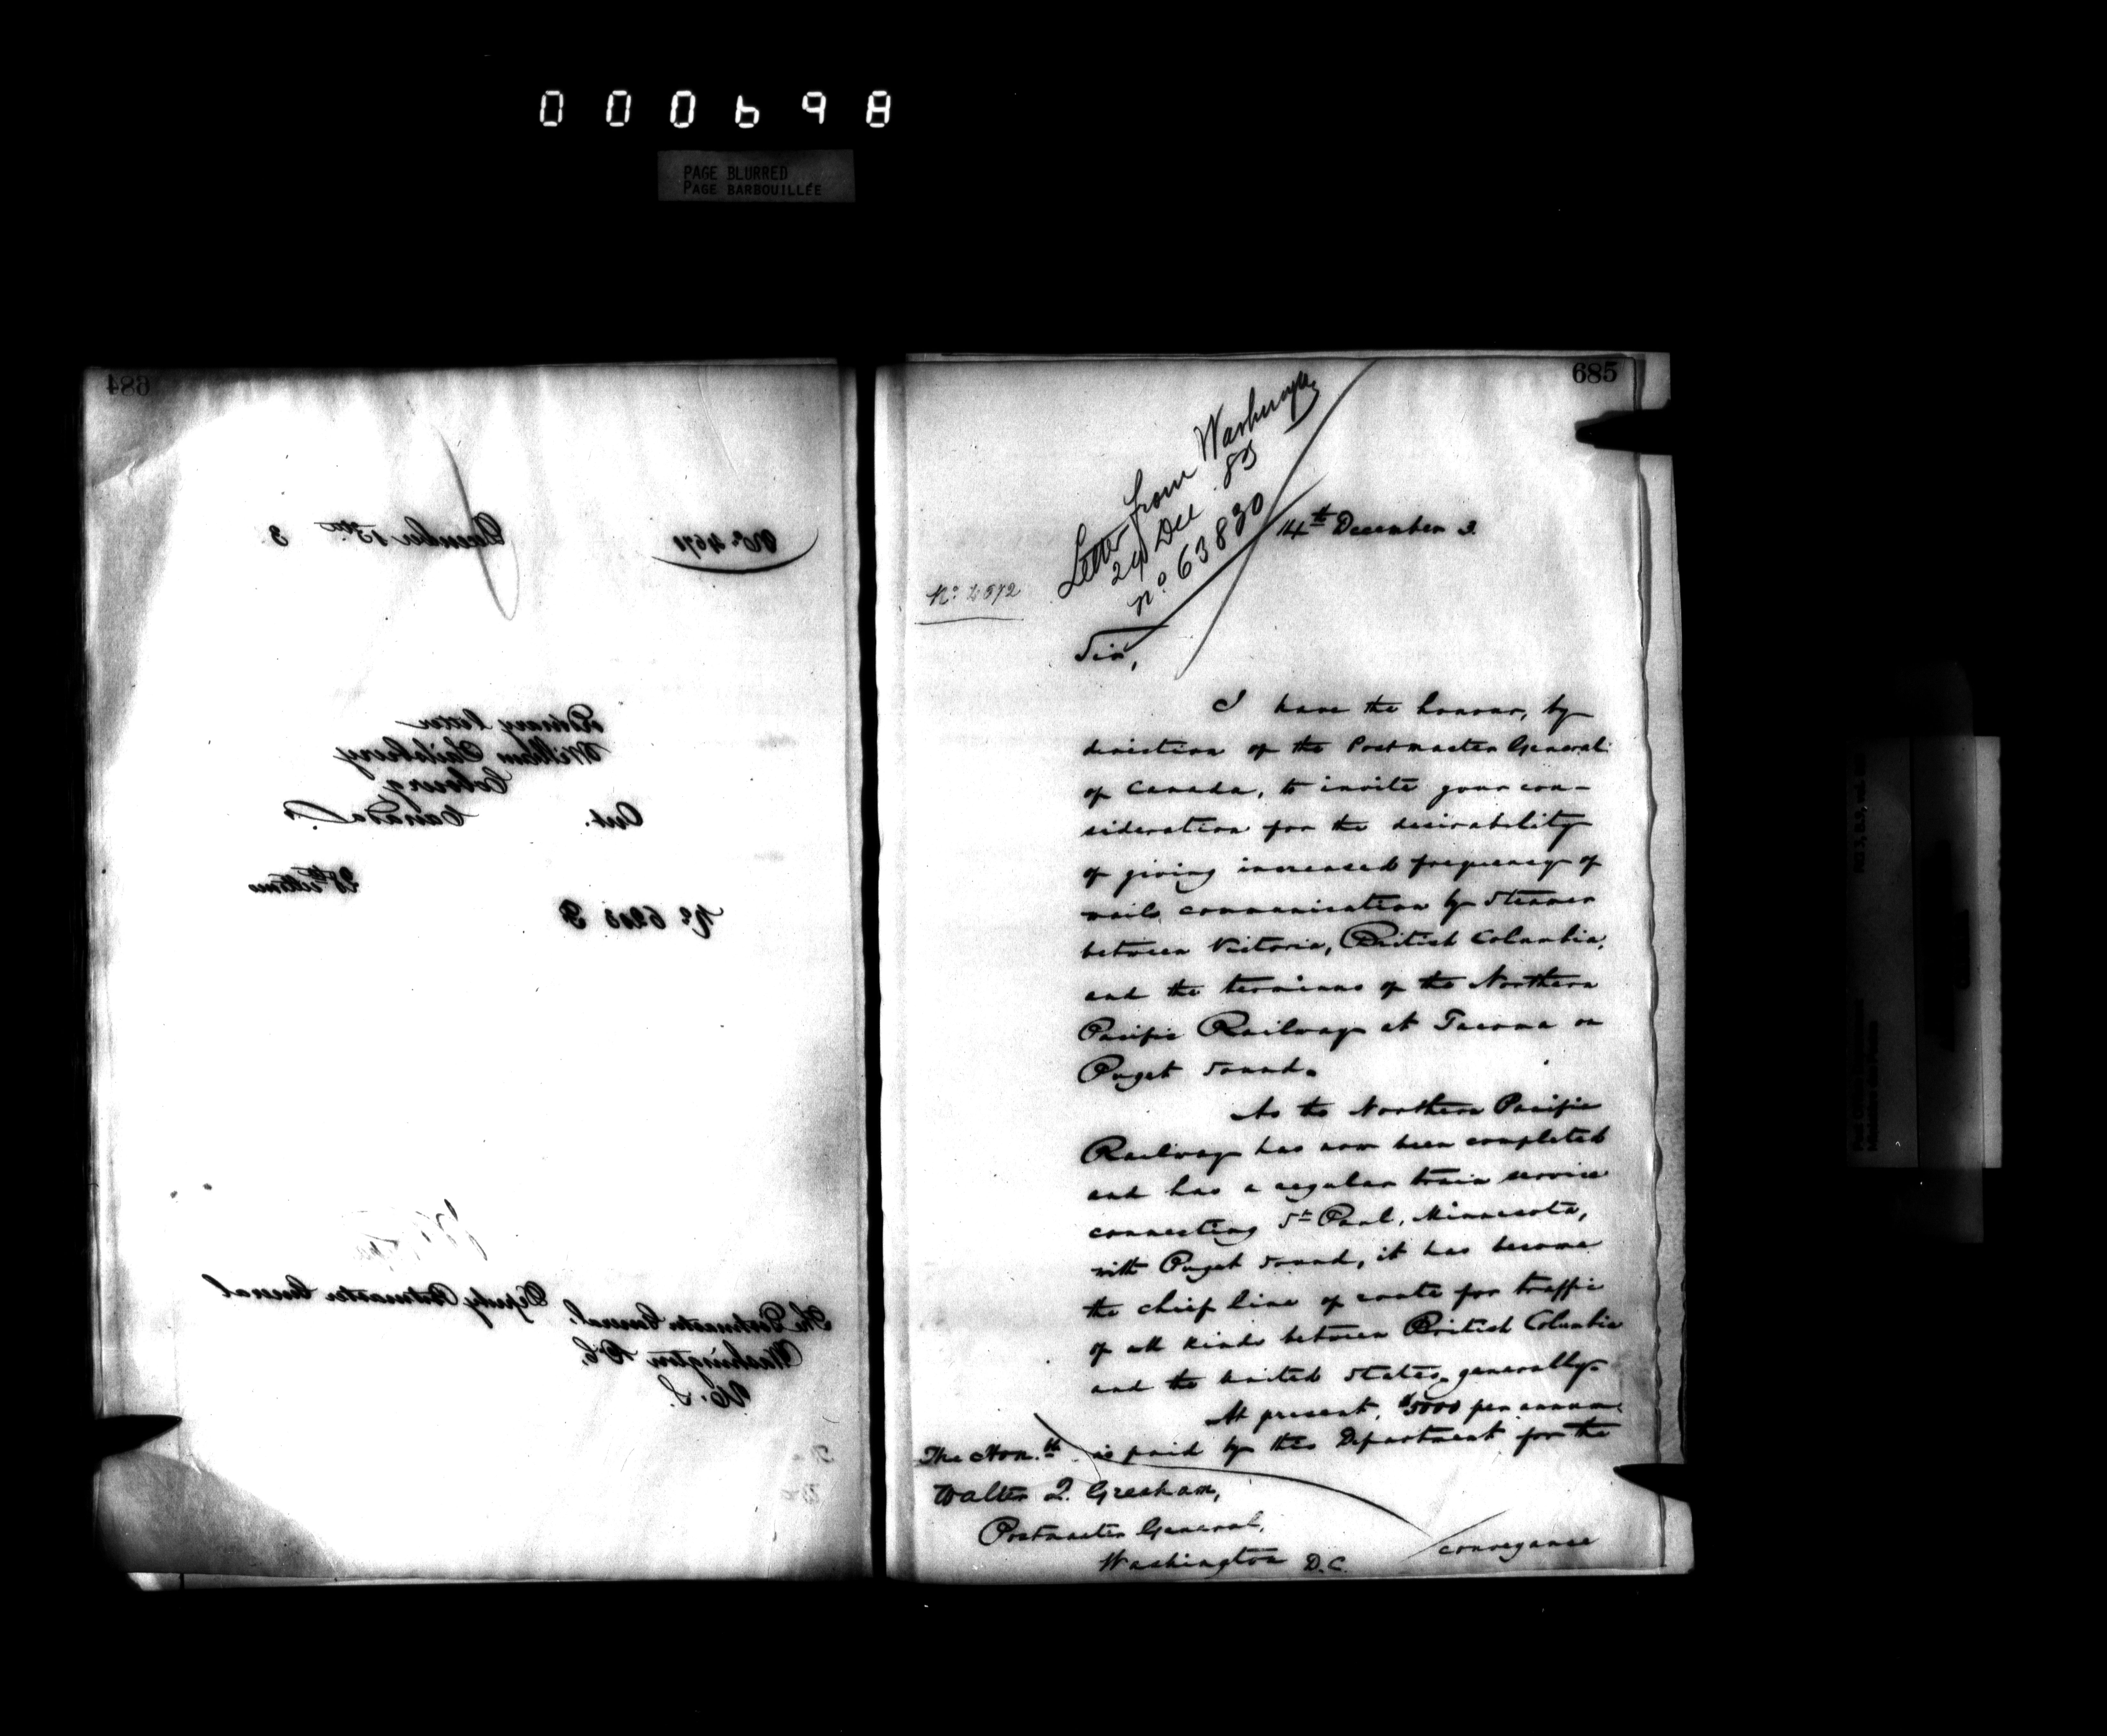 000698
PAGE BLURRED
PAGE BARBOUILLÉE
684
No. 4671
December 13th 3
Ordinary letter
William
Cobourg
Ont. Canada
28th ultimo
No.
Deputy Postmaster General
The Postmaster General,
Washington D.C.
U.S.
685
Letter from
29 Dec 83
No. 63830
14th December 3.
No. 4672
Sir,
I have the honour, by
direction of the Postmaster General
of Canada, to invite your con-
sideration for the desirability
of giving increased frequency of
mail communication by steamer
between Victoria, British Columbia,
and the terminus of the Northern
Pacific Railway at Tacoma on
Puget Sound.
As the Northern Pacific
Railway has now been completed
and has a regular train service
connecting St. Paul, Minnesota,
with Puget Sound, it has become
the chief line of route for traffic
of all kinds between British Columbia
and the United States generally.
At present, $5000 per annum
is paid by this Department for the
The Honble
Walter Q. Gresham,
Postmaster General,
Washington D.C.
conveyance